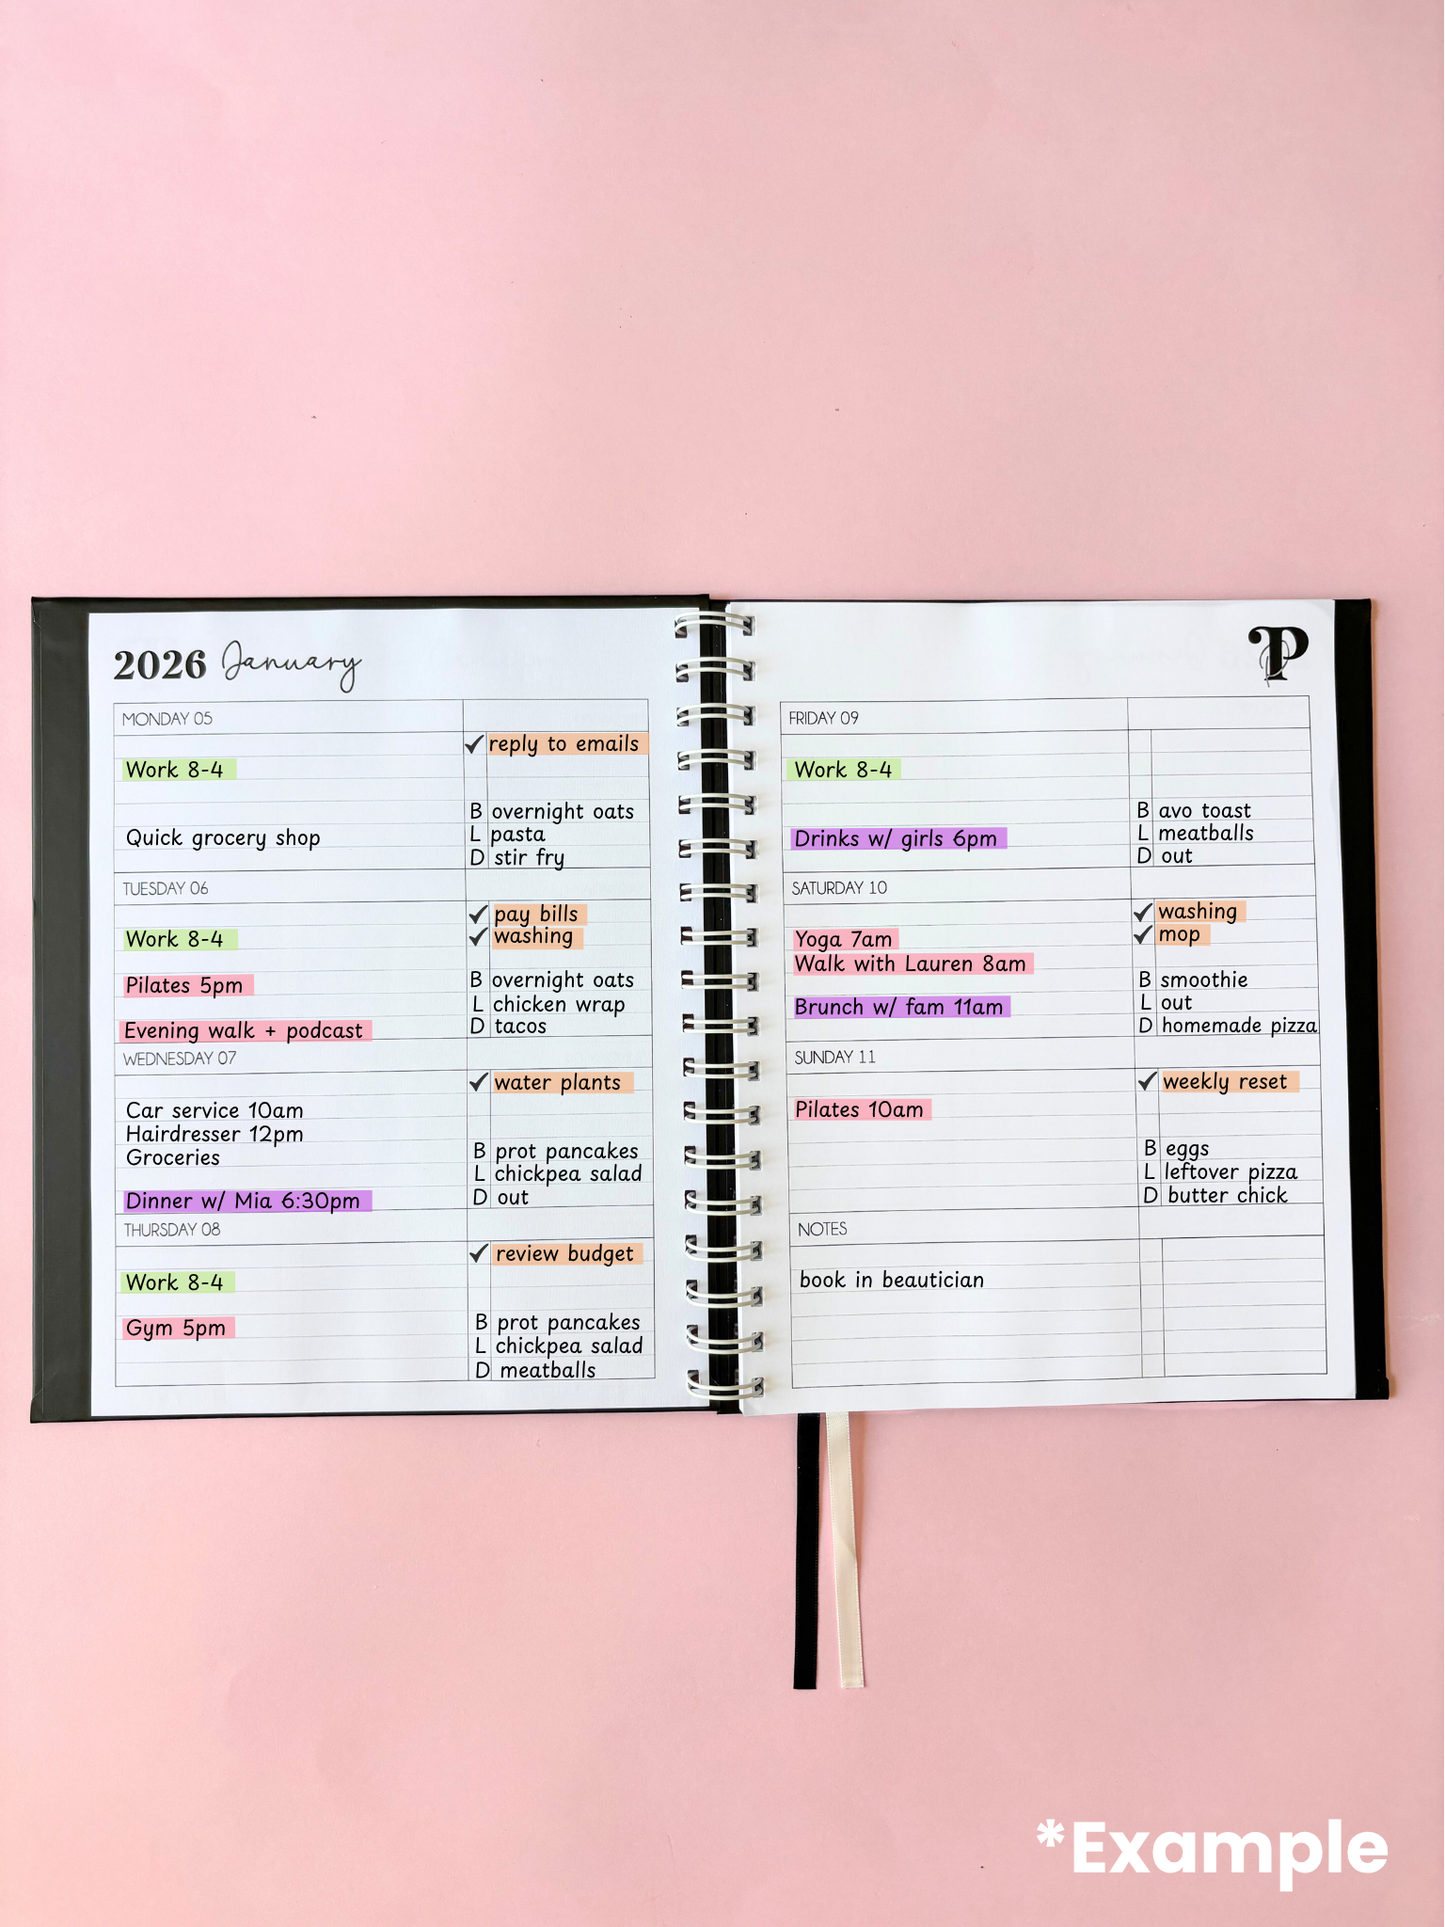 2026 January
MONDAY 05
✓ reply to emails
Work 8-4
B overnight oats
Quick grocery shop
L pasta
D stir fry
TUESDAY 06
✓ pay bills
✓ washing
Work 8-4
Pilates 5pm
B overnight oats
L chicken wrap
Evening walk + podcast
D tacos
WEDNESDAY 07
✓ water plants
Car service 10am
Hairdresser 12pm
Groceries
B prot pancakes
L chickpea salad
Dinner w/ Mia 6:30pm
D out
THURSDAY 08
✓ review budget
Work 8-4
Gym 5pm
B prot pancakes
L chickpea salad
D meatballs
P
FRIDAY 09
Work 8-4
B avo toast
Drinks w/ girls 6pm
L meatballs
D out
SATURDAY 10
✓ washing
✓ mop
Yoga 7am
Walk with Lauren 8am
B smoothie
Brunch w/ fam 11am
L out
D homemade pizza
SUNDAY 11
✓ weekly reset
Pilates 10am
B eggs
L leftover pizza
D butter chick
NOTES
book in beautician
*Example